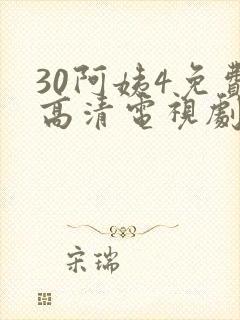 30阿姨4免費
高清電視劇
宋瑞